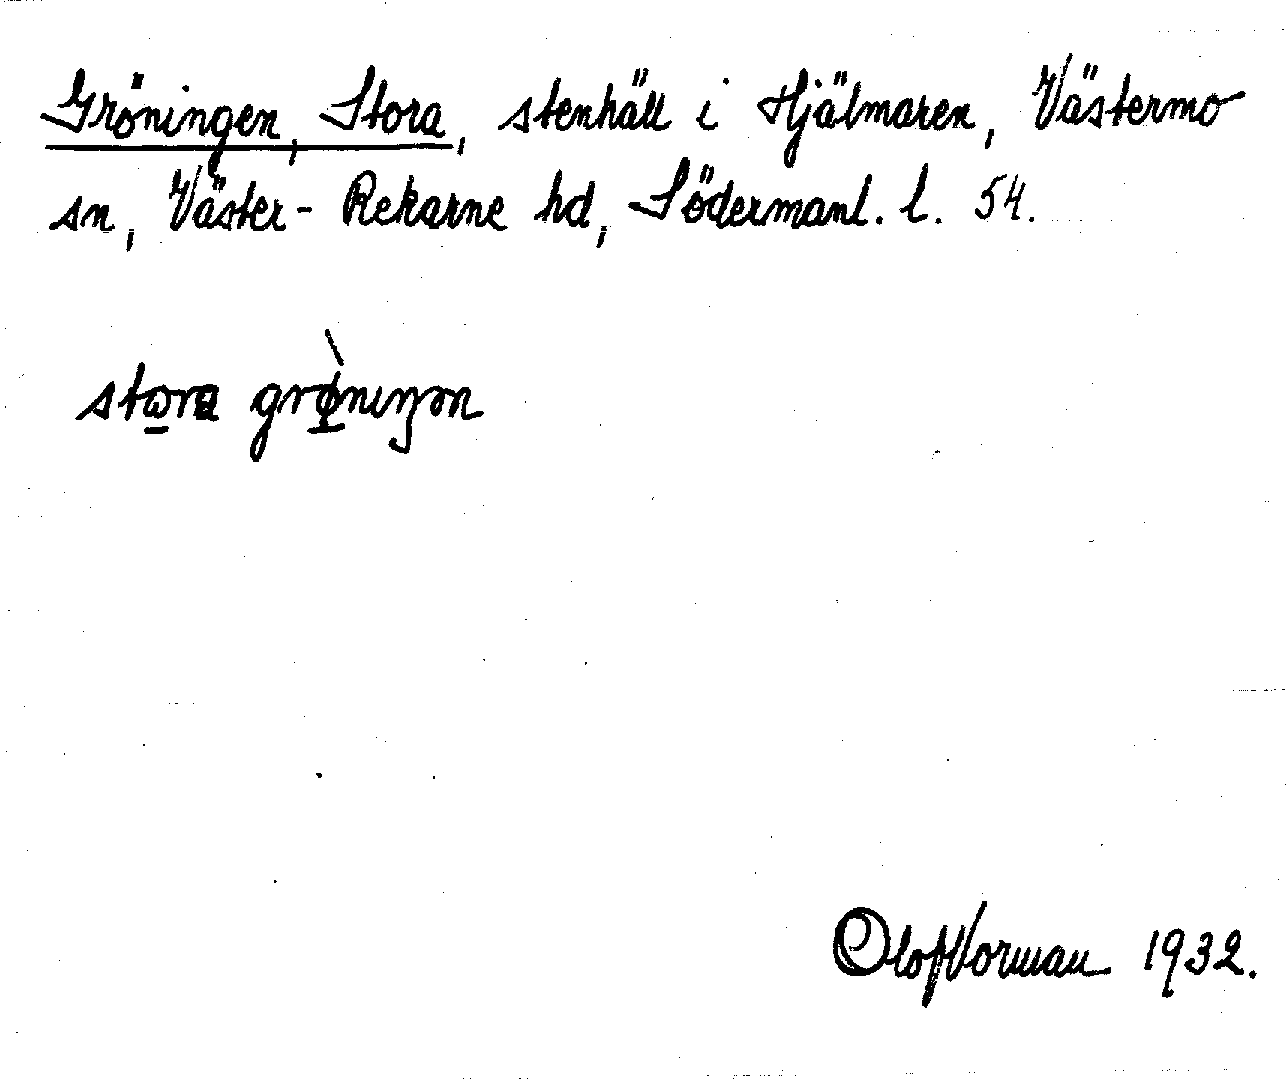 Gröningen, Stora, stenhäll i Hjälmaren, Västermo
sn, Väster-Rekarne hd, Södermanl. l. 54.
stora grø̀niŋən
Olof Norman 1932.